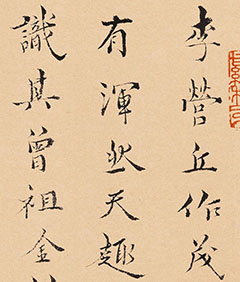 李營丘作茂
有渾然天趣
識其曾祖金